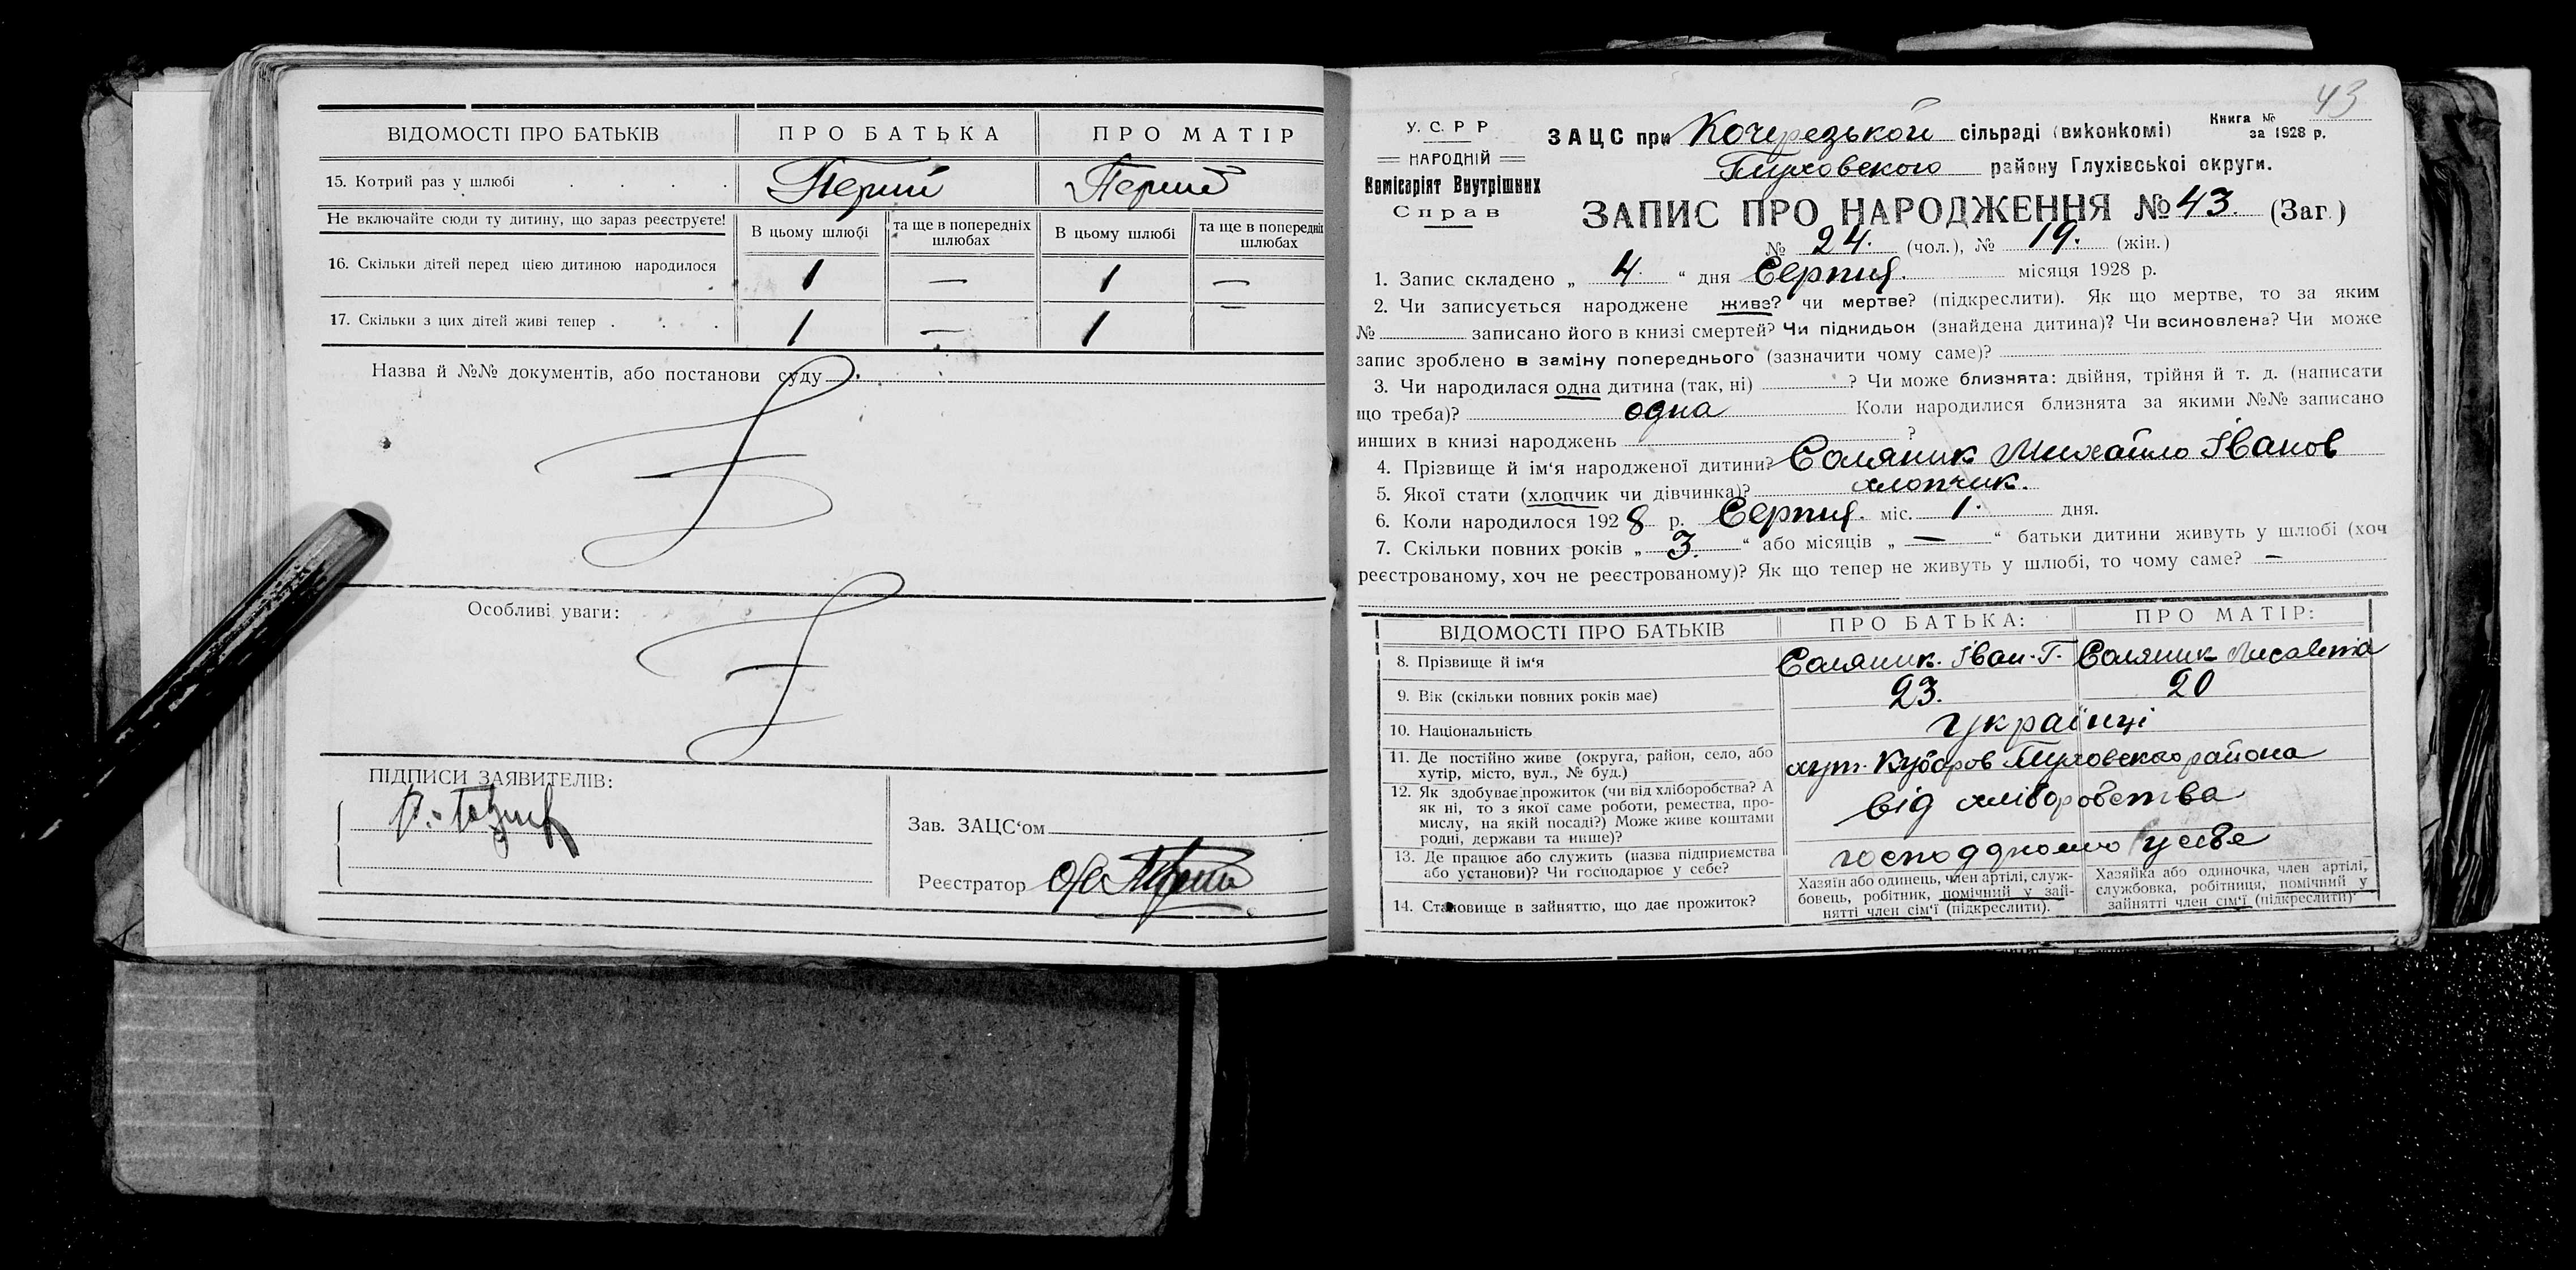 ВІДОМОСТІ ПРО БАТЬКІВ ПРО БАТЬКА ПРО МАТІР
15. Котрий раз у шлюбі . . . . Перший Перший
Не включайте сюди ту дитину, що зараз реєструєте!
В цьому шлюбі та ще в попередніх шлюбах В цьому шлюбі та ще в попередніх шлюбах
16. Скільки дітей перед цією дитиною народилося 1 — 1 —
17. Скільки з цих дітей живі тепер . . . 1 — 1 —
Назва й №№ документів, або постанови суду
Особливі уваги:
ПІДПИСИ ЗАЯВИТЕЛІВ:
Зав. ЗАЦС‘ом
Реєстратор
43
У. С. Р Р
НАРОДНІЙ
Комісаріят Внутрішних
Справ
ЗАЦС при Кочерезькой сільраді (виконкомі)
Книга №
за 1928 р.
району Глухівської округи.
ЗАПИС ПРО НАРОДЖЕННЯ № 43. (Заг.)
№ 24. (чол.), № 19. (жін.)
1. Запис складено „ 4. “ дня Серпня. місяця 1928 р.
2. Чи записується народжене живе? чи мертве? (підкреслити). Як що мертве, то за яким
№ записано його в книзі смертей? Чи підкидьок (знайдена дитина)? Чи всиновлена? Чи може
запис зроблено в заміну попереднього (зазначити чому саме)?
3. Чи народилася одна дитина (так, ні) ? Чи може близнята: двійня, трійня й т. д. (написати
що треба)? одна Коли народилися близнята за якими №№ записано
инших в книзі народжень ?
4. Прізвище й ім‘я народженої дитини? Соляник Михайло Іванов
5. Якої стати (хлопчик чи дівчинка)? хлопчик.
6. Коли народилося 1928 р. Серпня. міс. 1. дня.
7. Скільки повних років „ 3. “ або місяців „ — “ батьки дитини живуть у шлюбі (хоч
реєстрованому, хоч не реєстрованому)? Як що тепер не живуть у шлюбі, то чому саме? —
ВІДОМОСТІ ПРО БАТЬКІВ ПРО БАТЬКА: ПРО МАТІР:
8. Прізвище й ім‘я Соляник. Іван. Г. Соляник Лисавета
9. Вік (скільки повних років має) 23. 20
10. Національність українці
11. Де постійно живе (округа, район, село, або
хутір, місто, вул., № буд.) хут. района
12. Як здобуває прожиток (чи від хліборобства? А
як ні, то з якої саме роботи, ремества, про-
мислу, на якій посаді?) Може живе коштами
родні, держави та инше)? від хліборобства
13. Де працює або служить (назва підприємства
або установи)? Чи господарює у себе? у себе
14. Становище в зайняттю, що дає прожиток?
Хазяїн або одинець, член артілі, служ-
бовець, робітник, помічний у зай-
нятті член сім‘ї (підкреслити).
Хазяйка або одиночка, член артілі,
службовка, робітниця, помічний у
зайнятті член сім‘ї (підкреслити)